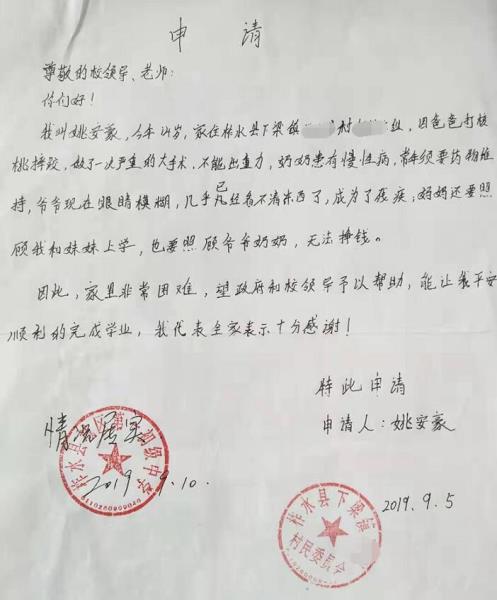 申 请
尊敬的校领导、老师:
你们好!
我叫姚安豪,今年14岁,家住柞水县下梁镇 村 组,因爸爸打核
桃摔跤,做了一次严重的大手术,不能出重力,奶奶患有慢性病,常年须要药物维
持,爷爷现在眼睛模糊,几乎已经看不清东西了,成为了残疾;妈妈还要照
顾我和妹妹上学,也要照顾爷爷奶奶,无法挣钱。
因此,家里非常困难,望政府和校领导予以帮助,能让我平安
顺利的完成学业,我代表全家表示十分感谢!
特此申请
申请人:姚安豪
2019.9.5
情况属实
2019.9.10.
柞水县 初级中学
6110260909040
柞水县下梁镇
村民委员会